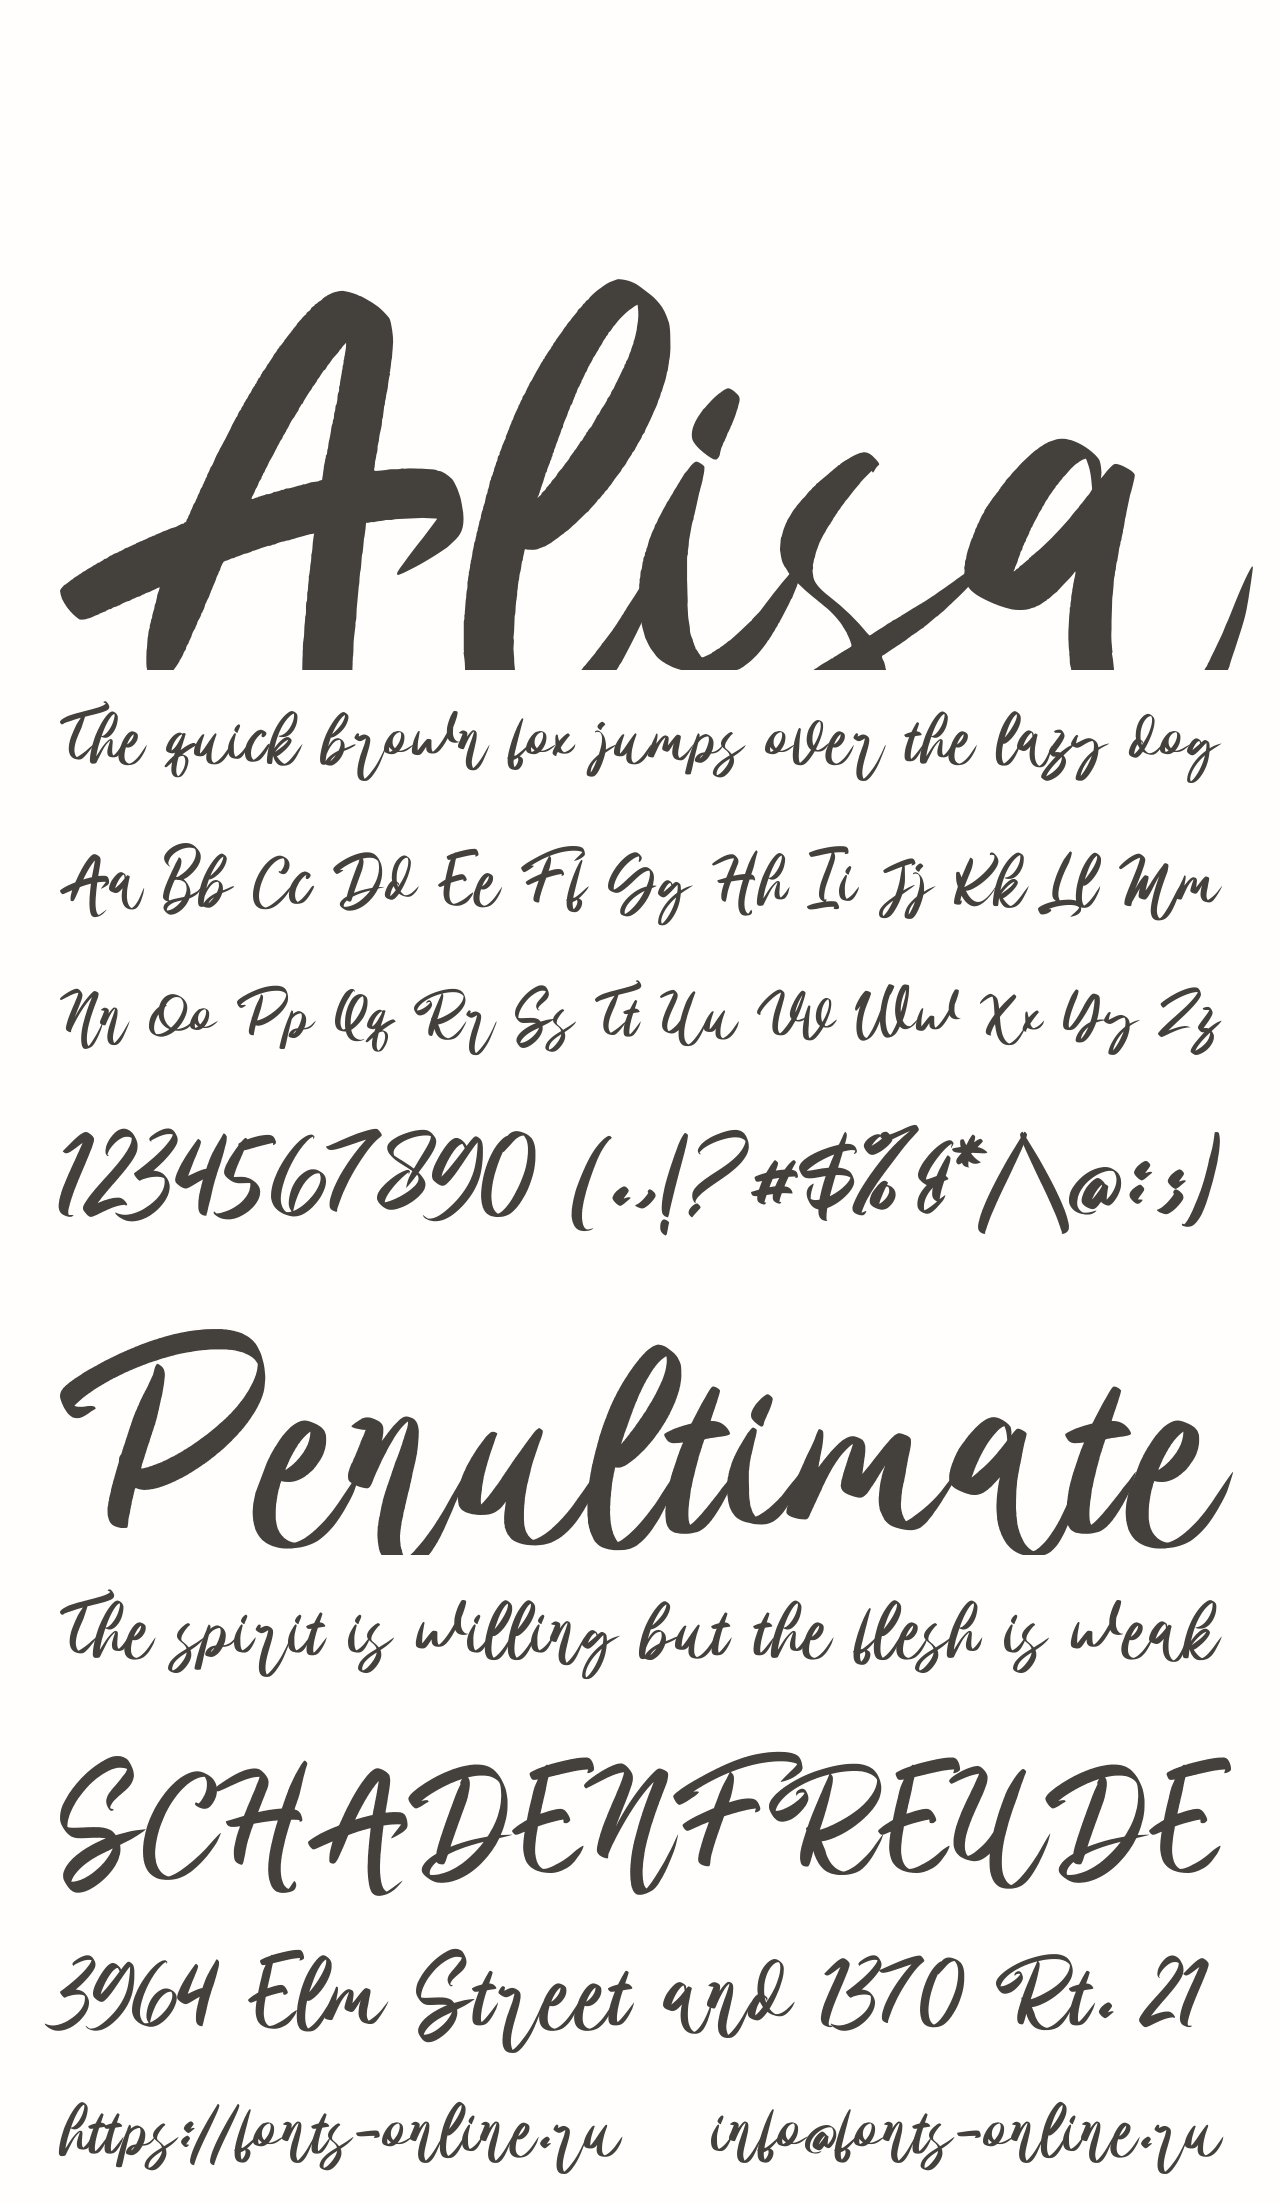 Alisa
The quick brown fox jumps over the lazy dog
Aa Bb Cc Dd Ee Ff Gg Hh Ii Jj Kk Ll Mm
Nn Oo Pp Qq Rr Ss Tt Uu Vv Ww Xx Yy Zz
1234567890 (.,!?#$%&*/\@:;)
Penultimate
The spirit is willing but the flesh is weak
SCHADENFREUDE
3964 Elm Street and 1370 Rt. 21
https://fonts-online.ru info@fonts-online.ru